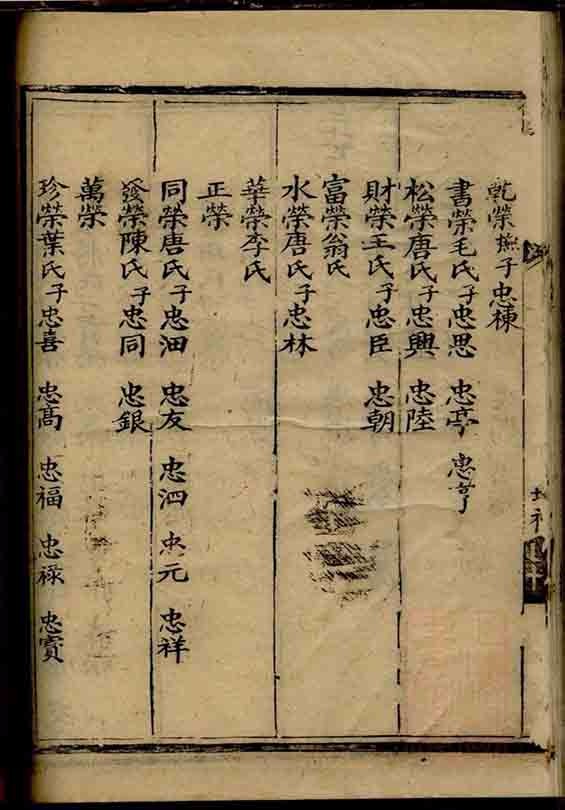 乾榮撫子忠棟
書榮毛氏子忠思 忠亭 忠亨
松榮唐氏子忠興 忠陸
財榮王氏子忠臣 忠朝
富榮翁氏
水榮唐氏子忠林
華榮李氏
正榮
同榮唐氏子忠沺 忠友 忠泗 忠元 忠祥
發榮陳氏子忠同 忠銀
萬榮
珍榮葉氏子忠喜 忠高 忠福 忠祿 忠寳